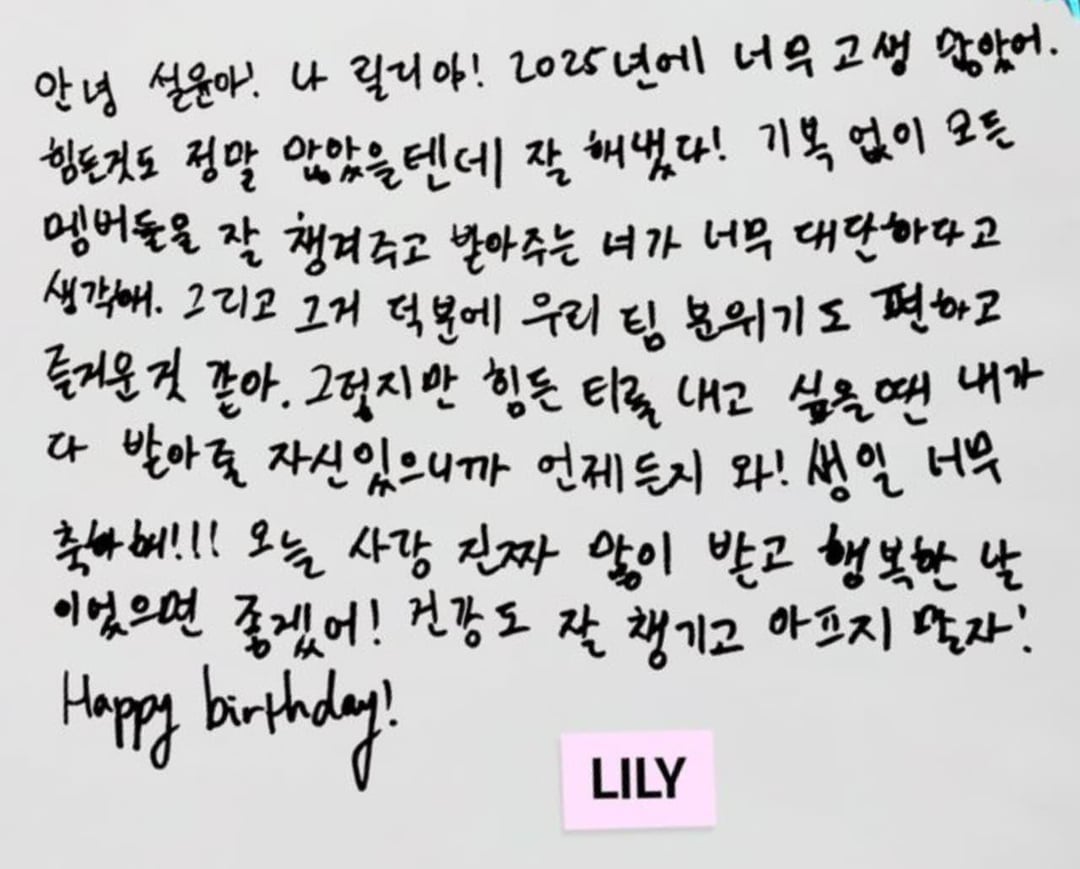 안녕 설윤아! 나 릴리야! 2025년에 너무 고생 많았어.
힘든것도 정말 많았을텐데 잘 해냈다! 기복 없이 모든
멤버들을 잘 챙겨주고 받아주는 너가 너무 대단하다고
생각해. 그리고 그거 덕분에 우리 팀 분위기도 편하고
즐거운것 같아. 그렇지만 힘든 티를 내고 싶을땐 내가
다 받아줄 자신있으니까 언제든지 와! 생일 너무
축하해!!! 오늘 사랑 진짜 많이 받고 행복한 날
이었으면 좋겠어! 건강도 잘 챙기고 아프지 말자!
Happy birthday!
LILY